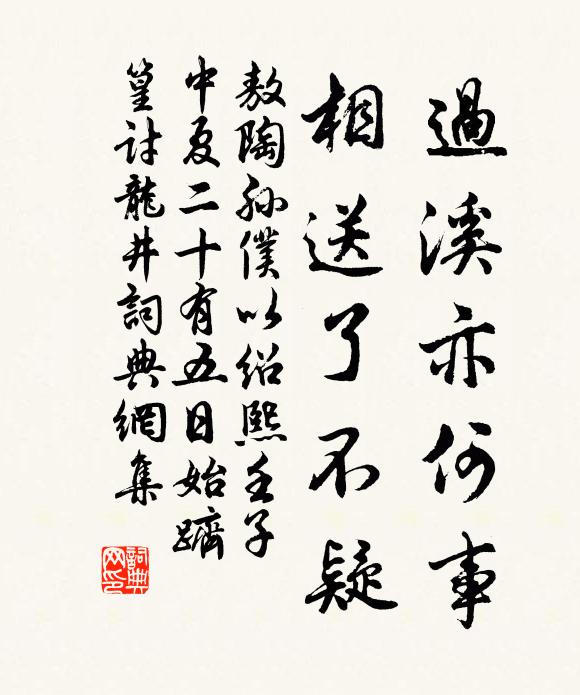 過溪亦何事
相送了不疑
敖陶孫僕以紹熙壬子
中夏二十有五日始躋
篁討龍井詞典網集
詞典
网印